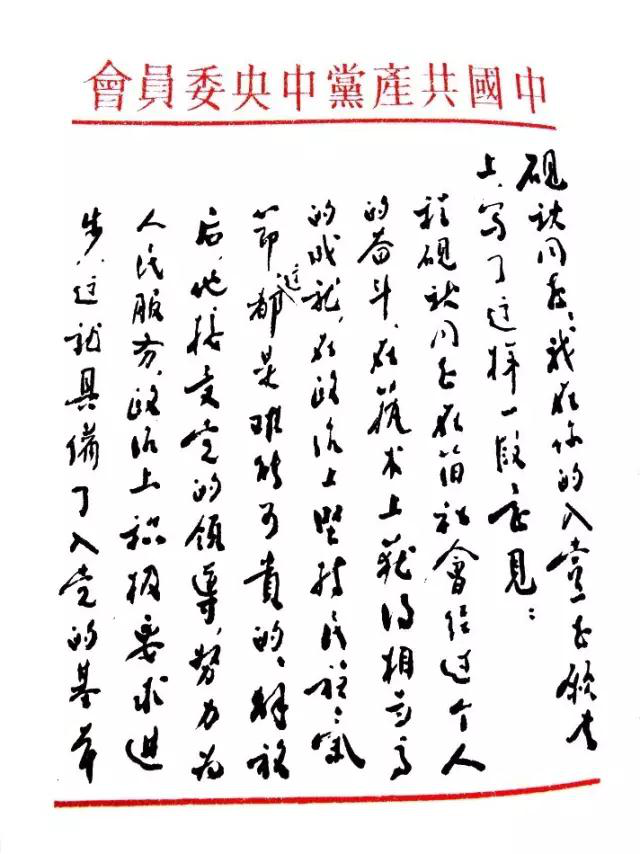 中國共產黨中央委員會
硯秋同志：我在你的入党志愿书
上，写了这样一段意见：
程硯秋同志在旧社會经过个人
的奋斗，在艺术上获得相当高
的成就，在政治上堅持民族氣
節，这都是难能可貴的；解放
后，他接受党的領導，努力为
人民服务，政治上积极要求进
步，这就具備了入党的基本